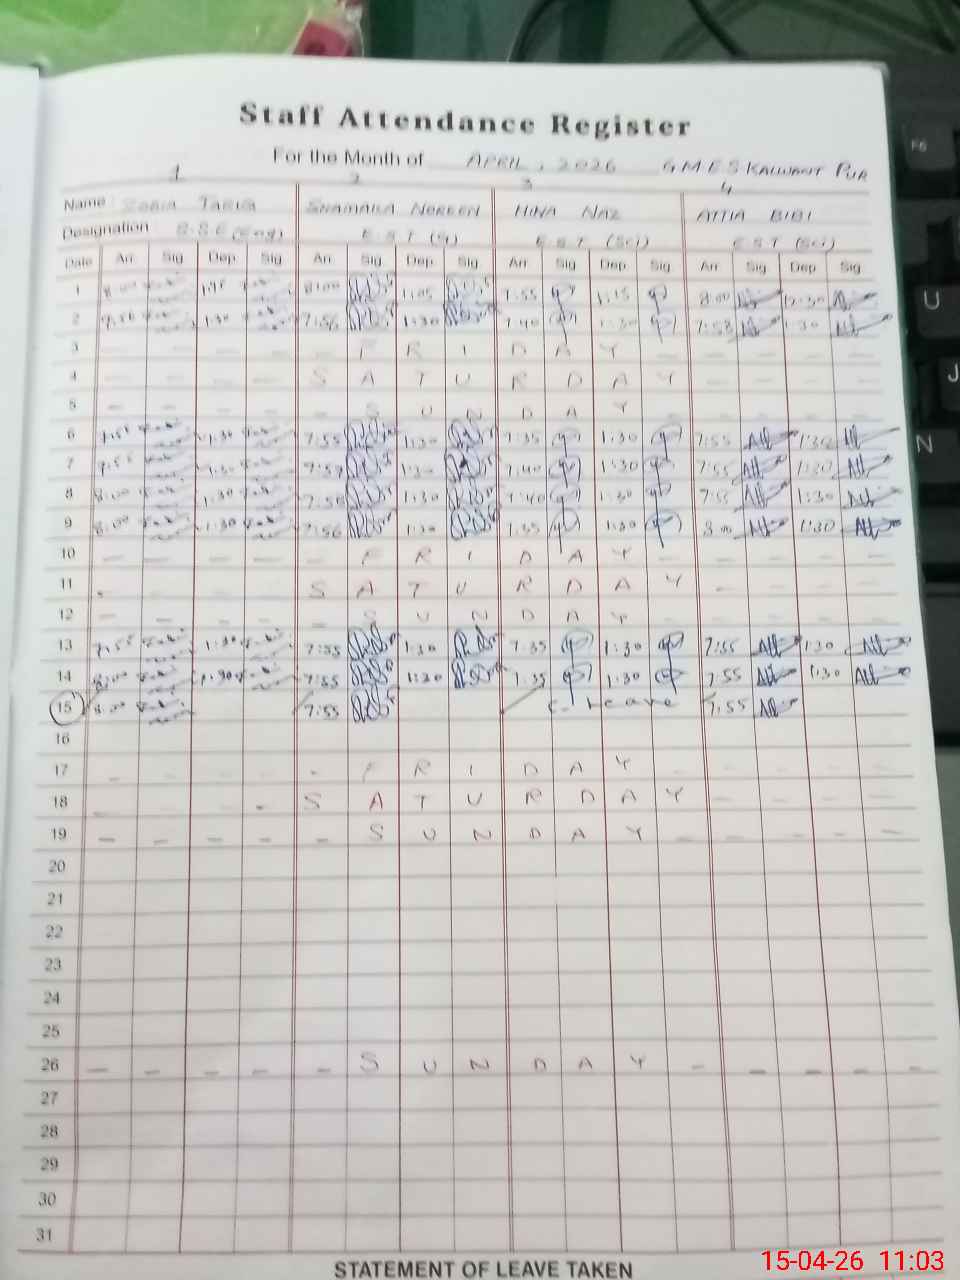 Staff Attendance Register
For the Month of APRIL, 2026 GMES KALWANT PUR
1 2 3 4
Name SOBIA TARIQ SHAMAILA NOREEN HINA NAZ ATTIA BIBI
Designation S.S.E (Eng) E.S.T (G) E.S.T (Sci) E.S.T (Sci)
Date Arr Sig Dep Sig Arr Sig Dep Sig Arr Sig Dep Sig Arr Sig Dep Sig
1 8:00 8:00 1:05 7:55 1:15 8:00 12:30
2 7:56 1:30 7:56 1:30 7:40 1:30 7:58 1:30
3 FRIDAY
4 SATURDAY
5 SUNDAY
6 7:55 1:30 7:55 1:30 7:35 1:30 7:55 1:30
7 7:55 1:30 7:57 1:30 7:40 1:30 7:55 1:30
8 8:00 1:30 7:56 1:30 7:40 1:30 7:55 1:30
9 8:00 1:30 7:56 1:30 7:35 1:30 8:00 1:30
10 FRIDAY
11 SATURDAY
12 SUNDAY
13 7:55 1:30 7:55 1:30 7:35 1:30 7:55 1:30
14 8:00 1:30 7:55 1:30 7:35 1:30 7:55 1:30
15 8:00 7:55 C. Leave 7:55
16
17 FRIDAY
18 SATURDAY
19 SUNDAY
20
21
22
23
24
25
26 SUNDAY
27
28
29
30
31
STATEMENT OF LEAVE TAKEN
15-04-26 11:03
F6
U
J
N